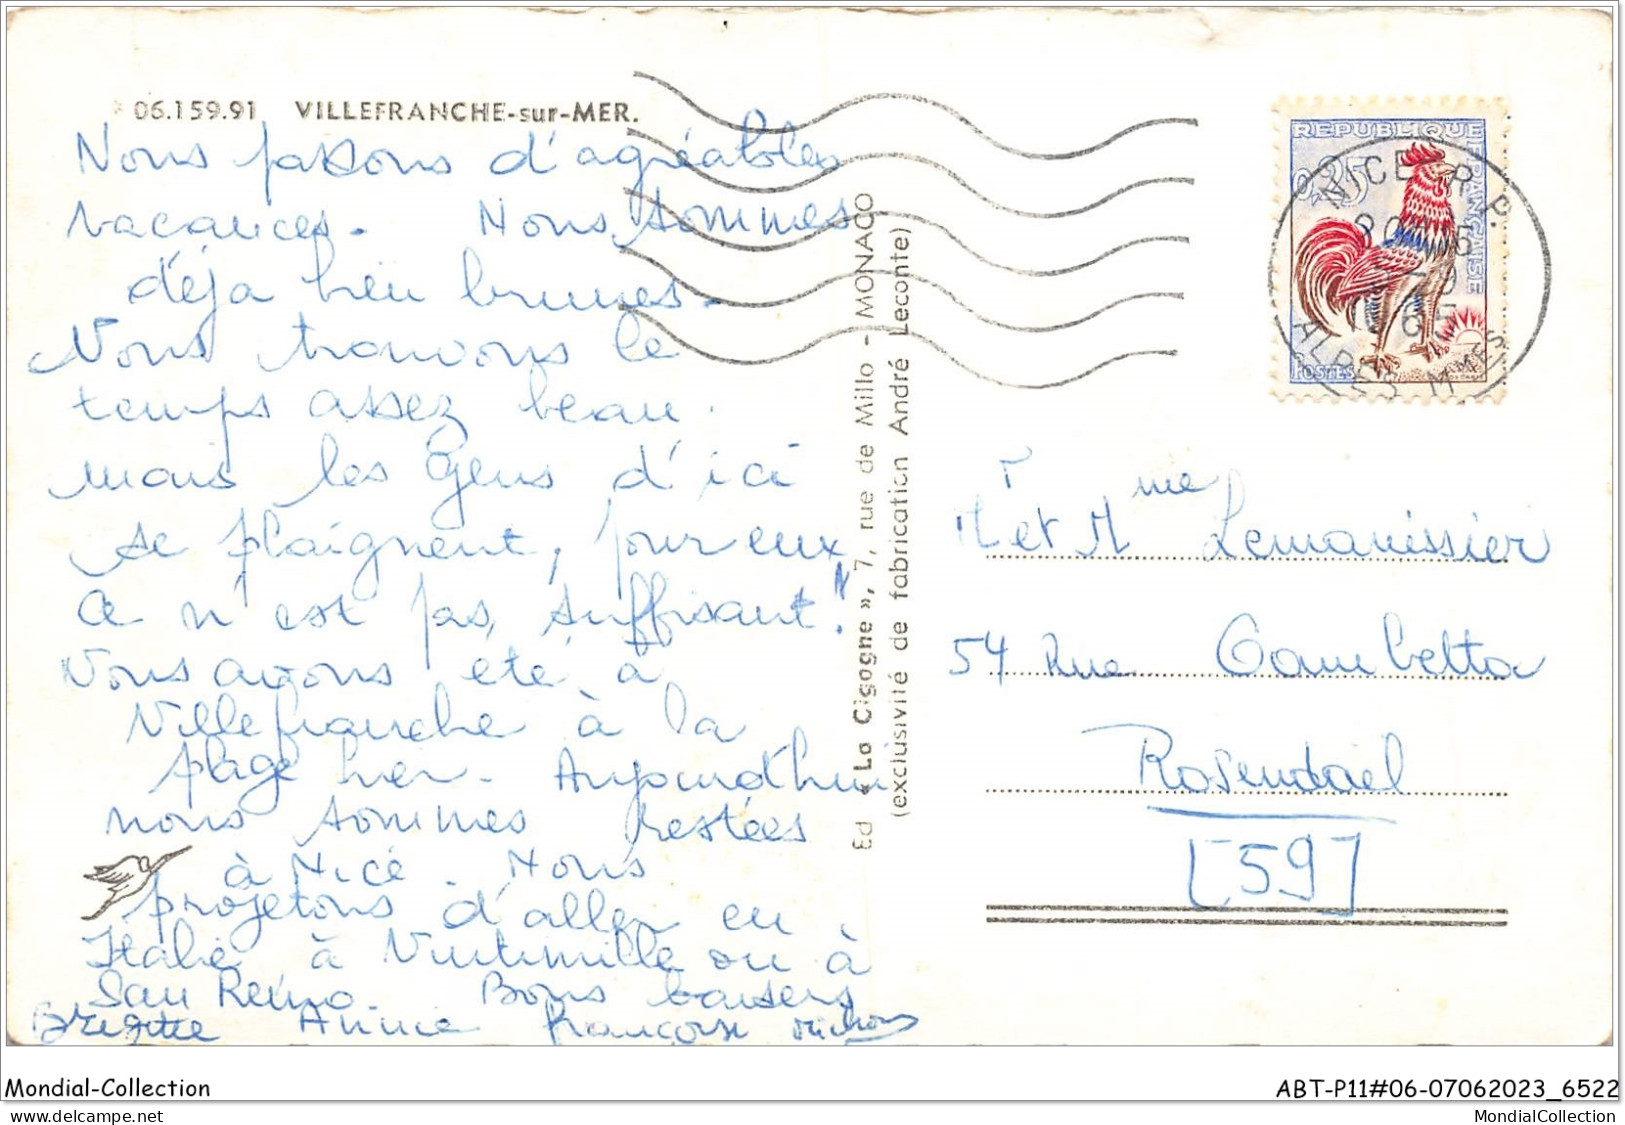 06.159.91 VILLEFRANCHE-sur-MER.
Nous passons d'agréables
vacances. Nous sommes
déja bien brunes.
Nous trouvons le
temps assez beau.
mais les Gens d'ici
se plaignent, pour eux
"Ce n'est pas suffisant".
Nous avons été à
Villefranche à la
plage hier. Aujourd'hui
nous sommes restées
à Nice. Nous
projetons d'aller en
Italie à Vintimille ou à
San Remo. Bons baisers
Brigitte Annie Françoise
Ed « La Cigogne », 7, rue de Millo - MONACO
(exclusivité de fabrication André Leconte)
REPUBLIQUE FRANÇAISE
0,25
POSTES
NICE R.P.
ALPES MMES
Mr et Mme Lemanissier
54 Rue Gambetta
Rosendael
[59]
Mondial-Collection
ABT-P11#06-07062023_6522
www.delcampe.net
MondialCollection